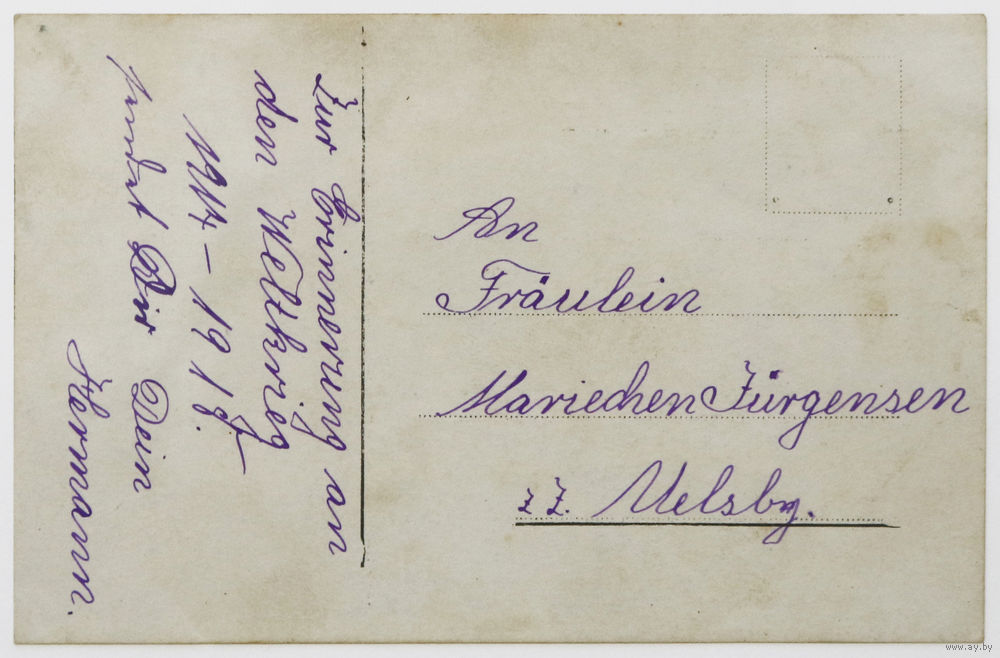 Zur Erinnerung an
den Weltkrieg
1914 – 191
sendet Dir Dein
Hermann.
An
Fräulein
Mariechen Jürgensen
z Z. Uelsby.
www.ay.by